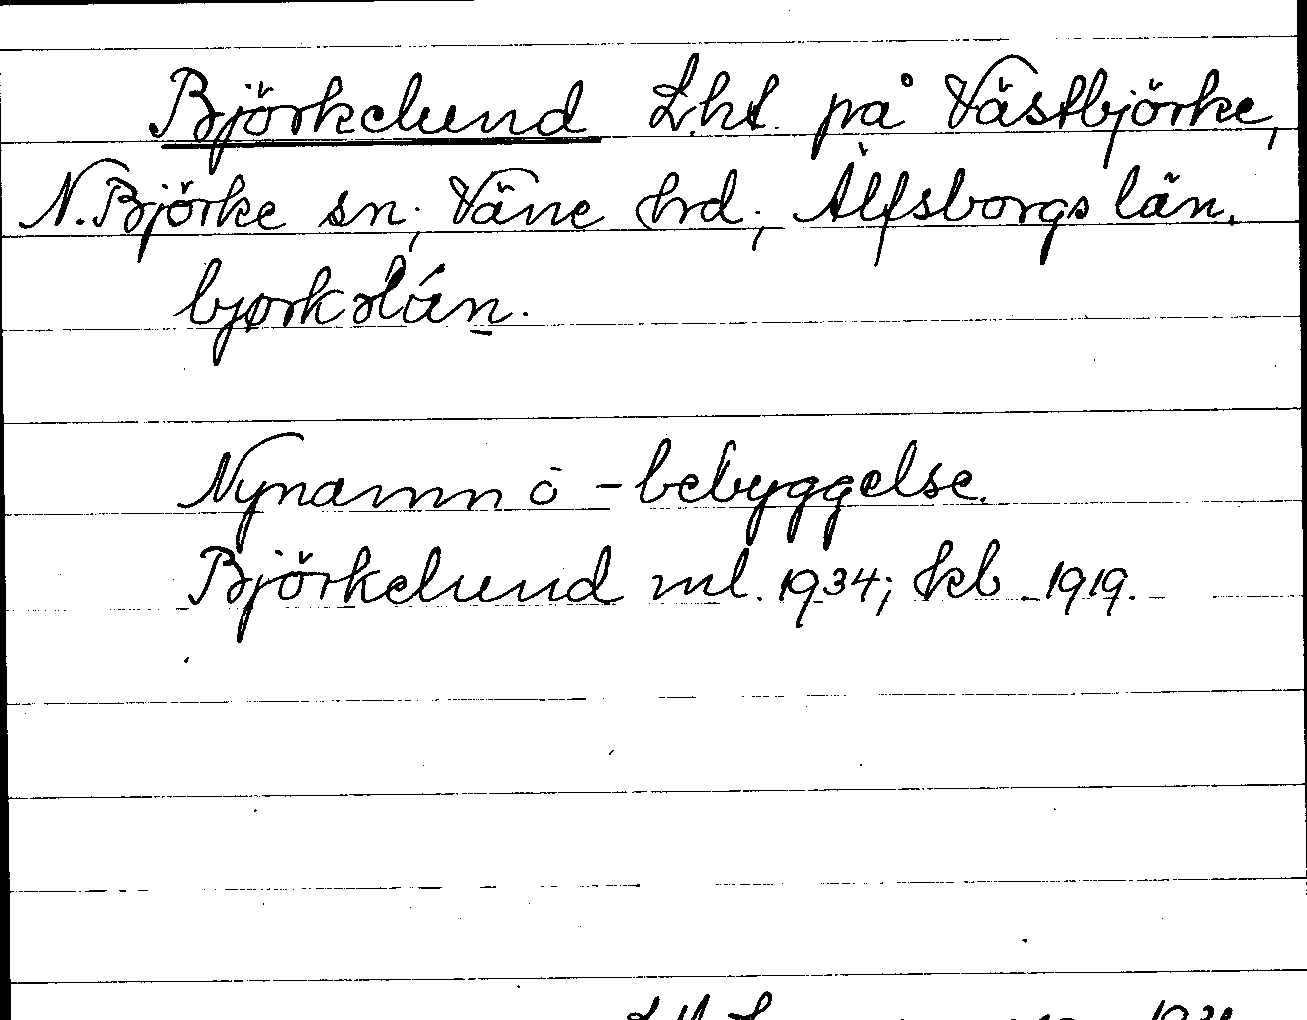 Björkelund L.ht. på Västbjörke,
N. Björke sn; Väne hrd; Älfsborgs län.
Nynamn o -bebyggelse.
Björkelund ml. 1934; kb 1919.